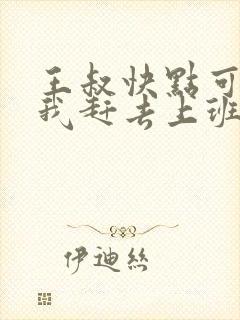 王叔快點可
我赶去上班
伊迪絲